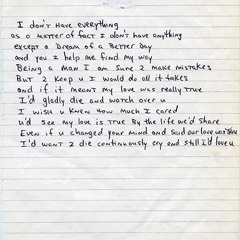 I don't have everything
as a matter of fact I don't have anything
except a Dream of a Better Day
and you 2 help me find my way
Being a man I am sure 2 make mistakes
But 2 keep u I would do all it takes
and if it meant my love was really true
I'd gladly die and watch over u
I wish u knew how much I cared
u'd see my love is true By the life we'd share
Even if u changed your mind and said our love was thru
I'd want 2 die continuously cry and still I'd love u